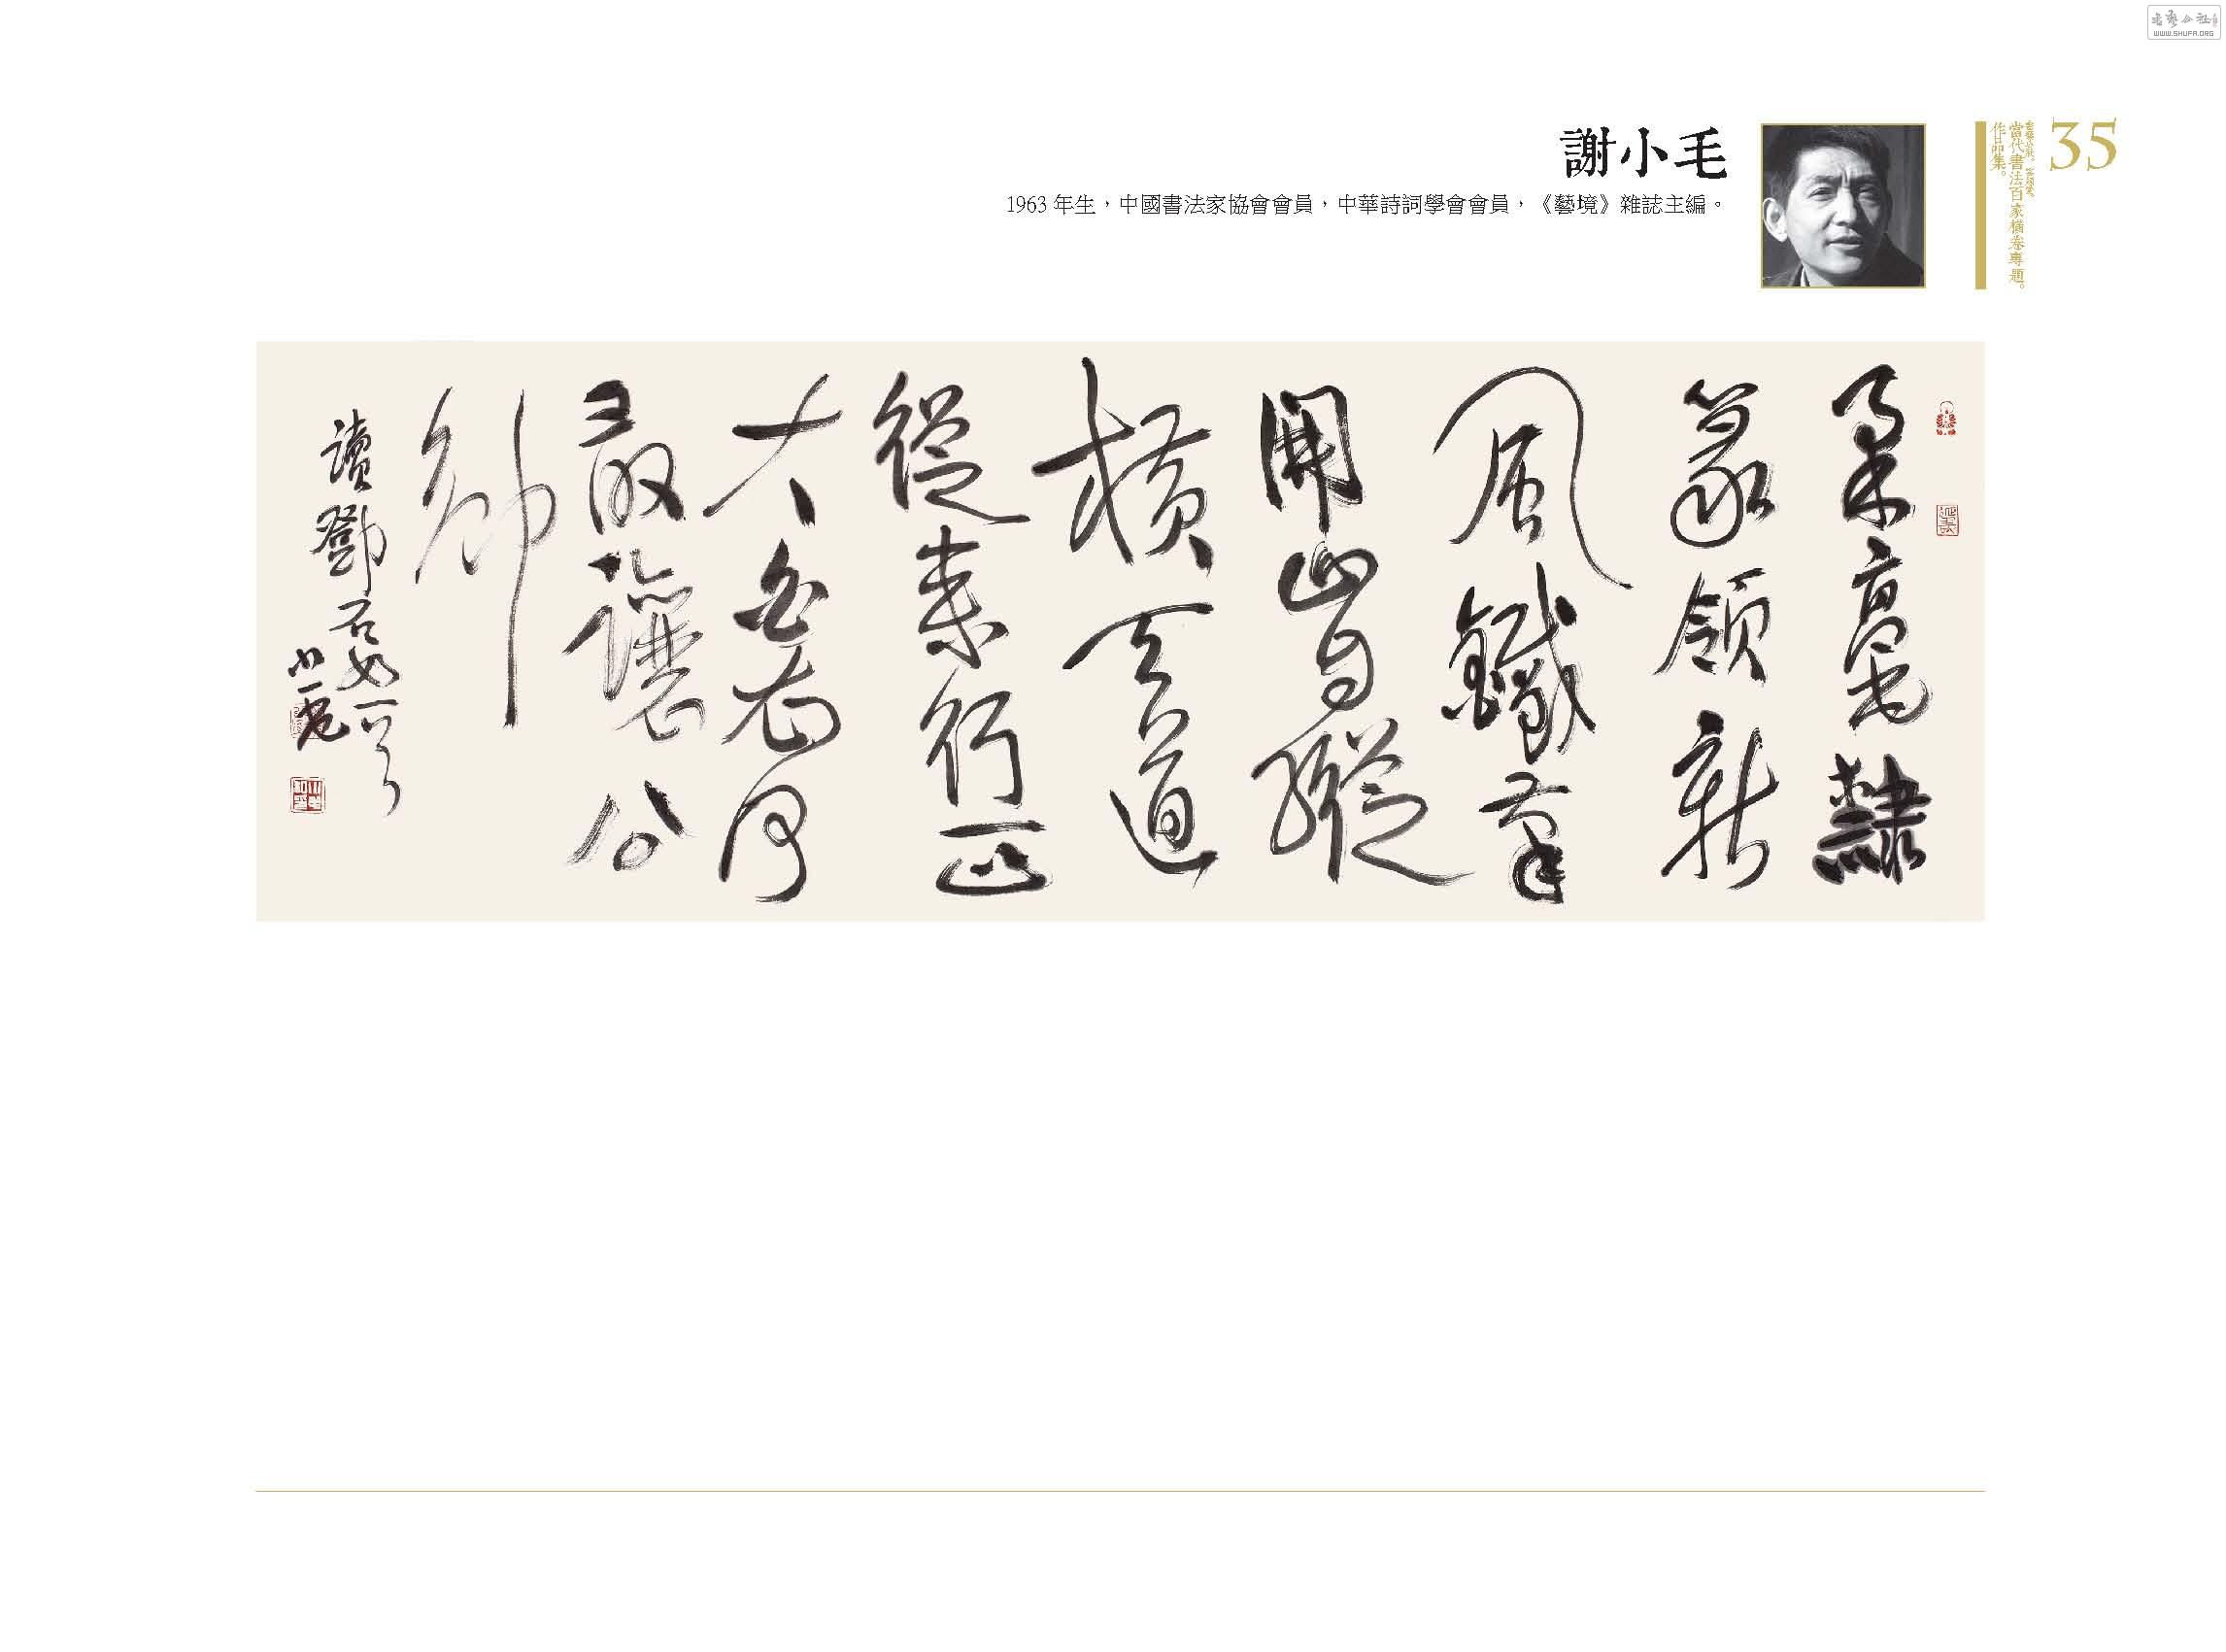 書藝公社
WWW.SHUFA.ORG
35
書藝公社。
當代書法百家橫卷專題。
作品集。
謝小毛
1963 年生，中國書法家協會會員，中華詩詞學會會員，《藝境》雜誌主編。
柔毫隸
篆領新
風鐵筆
開山自縱
橫天道
從來行正
大名何
敢讓公
卿
讀鄧石如一首
小毛